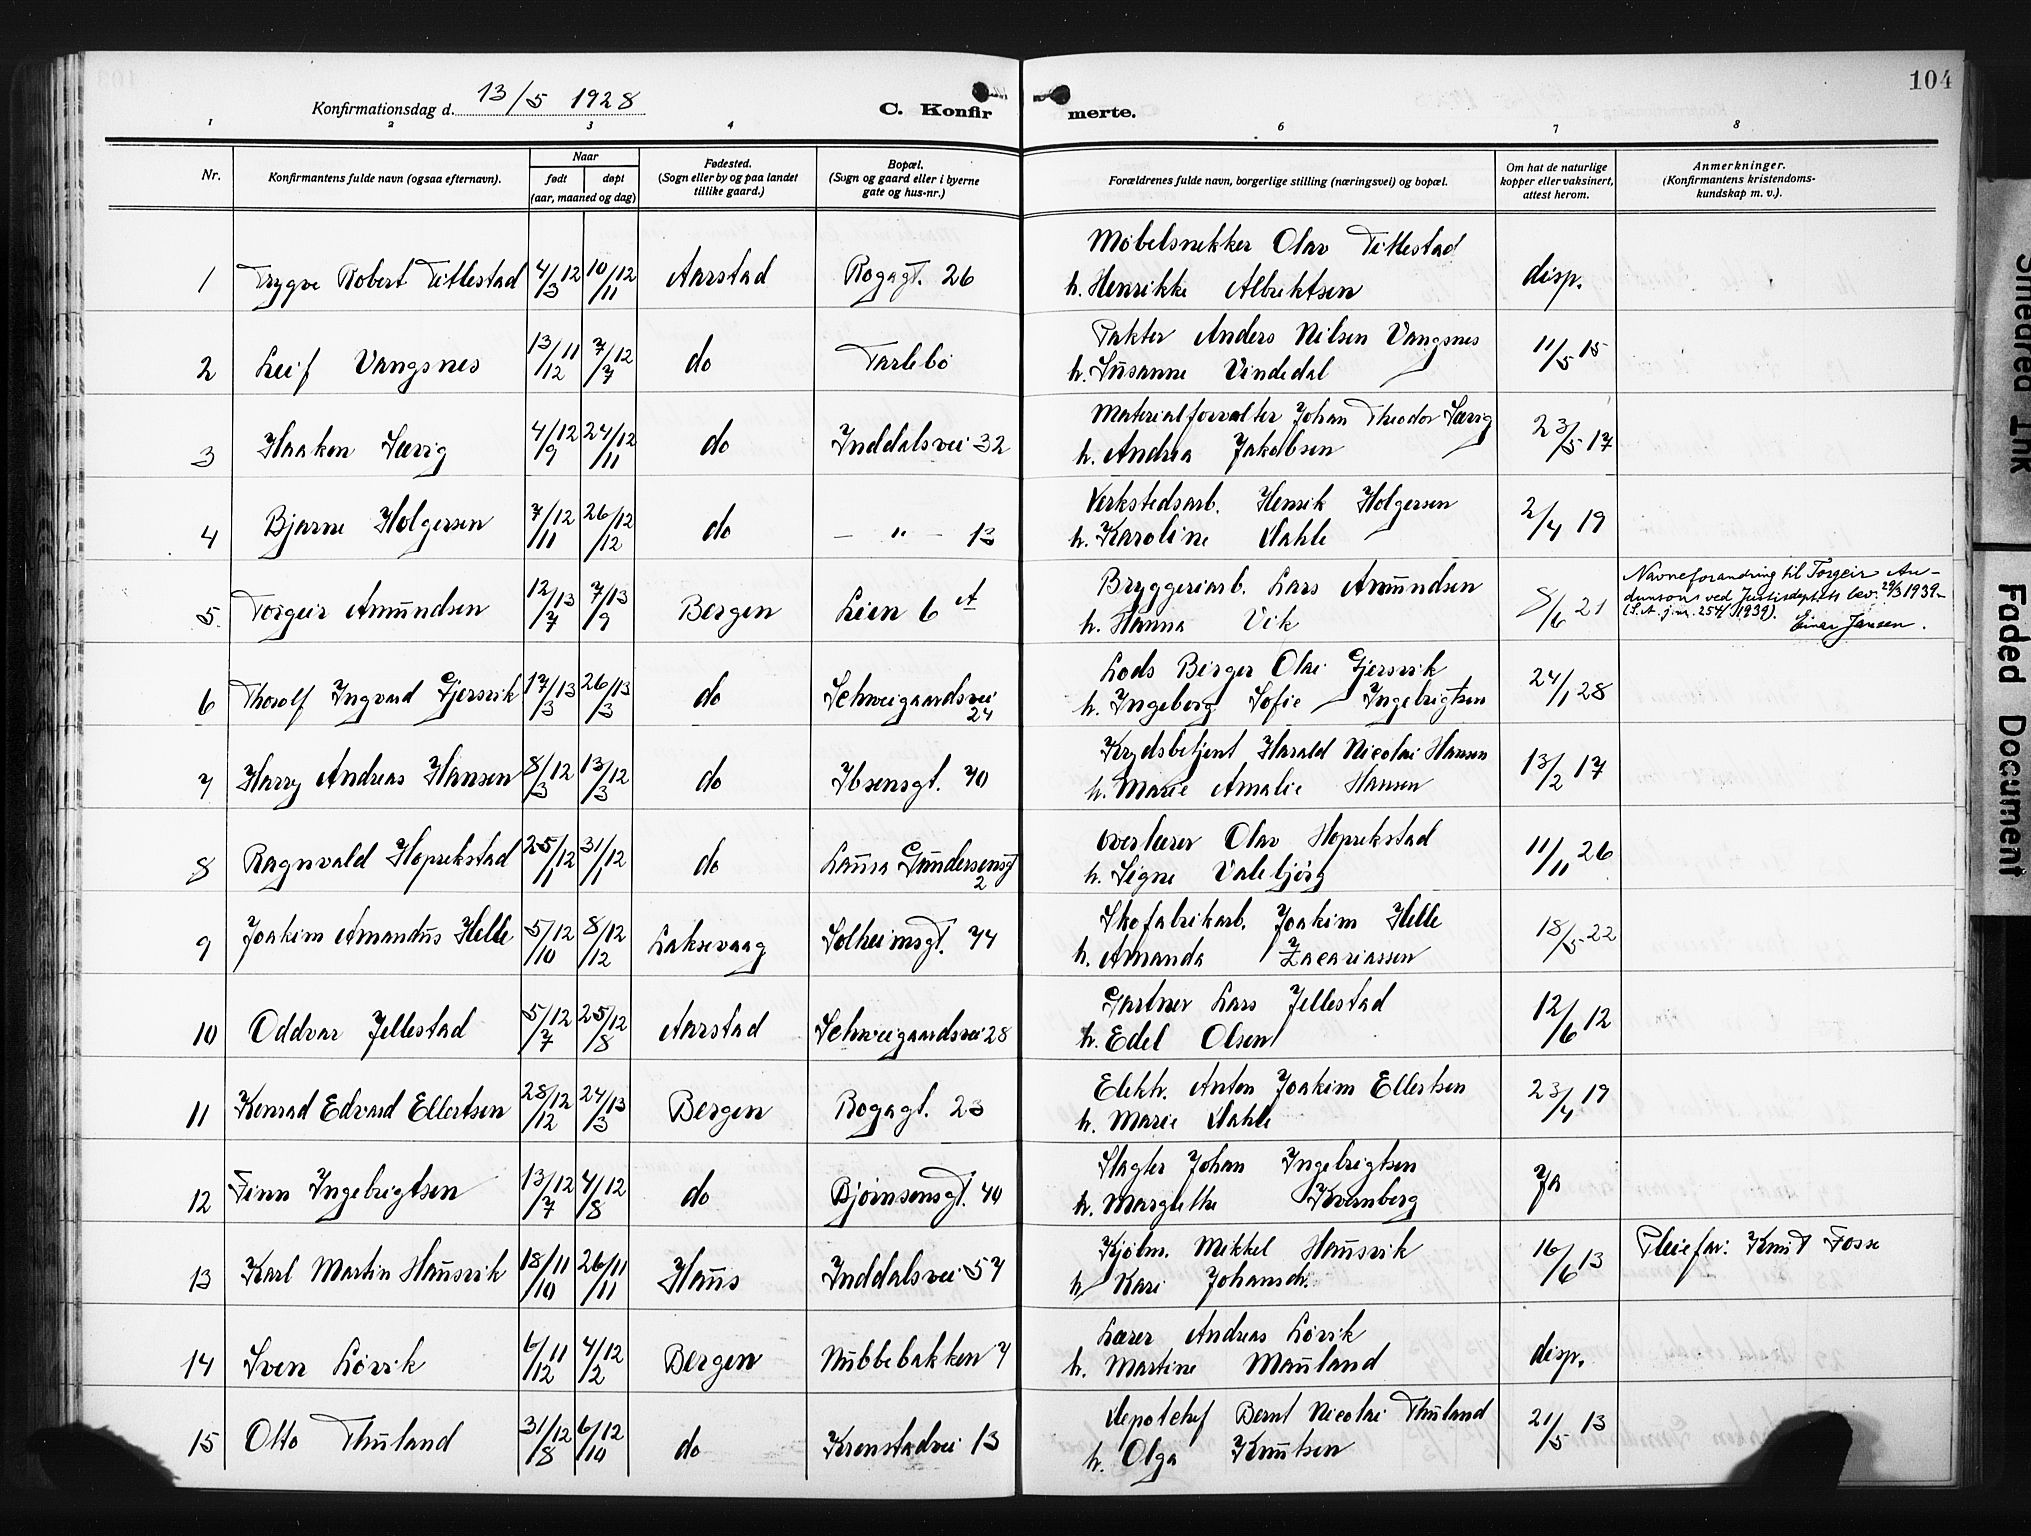 104
Konfirmationsdag d. 13/5 1928
C. Konfirmerte.
1 2 3 4 5 6 7 8
Nr. | Konfirmantens fulde navn (ogsaa efternavn). | Naar født døpt (aar, maaned og dag) | Fødested. (Sogn eller by og paa landet tillike gaard.) | Bopæl. (Sogn og gaard eller i byerne gate og hus-nr.) | Forældrenes fulde navn, borgerlige stilling (næringsvei) og bopæl. | Om hat de naturlige kopper eller vaksinert, attest herom. | Anmerkninger. (Konfirmantens kristendomskundskap m. v.).
1 Trygve Robert Titlestad 4/3 12 10/11 12 Aarstad Rogagt. 26 Møbelsnekker Olav Titlestad
h. Henrikke Albriktsen disp.
2 Leif Vangsnes 13/12 11 7/7 12 do Tarlebø Pakter Anders Nilsen Vangsnes
h. Susanne Vindedal 11/5 15
3 Haakon Særig 4/9 12 24/11 12 do Inddalsvei 32 Materialforvalter Johan Theodor Særig
h. Andrea Jakobsen 23/5 17
4 Bjarne Holgersen 7/11 12 26/12 12 do — " — 13 Verkstedsarb. Henrik Holgersen
h. Karoline Dahle 2/4 19
5. Torgeir Amundsen 12/7 13 7/9 13 Bergen Lien 6 A Bryggeriarb. Lars Amundsen
h. Hanna Vik 8/6 21
Navneforandring til Torgeir Au-
dunson ved Justisdeptets bev. 29/3 1939.
(S.A. j.nr. 254/1939). Einar Jansen.
6 Thorolf Ingvard Gjersvik 17/3 13 26/3 13 do Schweigaardsvei 24 Lods Berger Olai Gjersvik
h. Ingeborg Sofie Ingebrigtsen 24/1 28
7 Harry Andreas Hansen 8/3 12 13/3 12 do Ibsensgt. 70 Krydsbetjent Harald Nicolai Hansen
h. Marie Amalie Hansen 13/2 17
8 Ragnvald Hoprekstad 25/1 12 31/1 12 do Laura Gundersensgt 2 Overlærer Olav Hoprekstad
h. Signe Valebjørg 11/11 26
9 Joakim Amandus Helle 5/10 12 8/12 12 Laksevaag Solheimsgt. 74 Skofabrikarb. Joakim Helle
h. Amanda Zacariassen 18/5 22
10 Oddvar Jellestad 5/7 12 25/8 12 Aarstad Schweigaardsvei 28 Gartner Lars Jellestad
h. Edel Olsen 12/6 12
11 Konrad Edvard Ellertsen 28/12 12 24/3 13 Bergen Rogagt. 23 Elektr. Anton Joakim Ellertsen
h. Marie Dahle 23/4 19
12 Finn Ingebrigtsen 13/7 12 4/8 12 do Bjørnsonsgt. 40 Slagter Johan Ingebrigtsen
h. Margrethe Kvernberg Ja
13 Karl Martin Hausvik 18/10 11 26/11 11 Haus Inddalsvei 57 Kjøbm. Mikkel Hausvik
h. Kari Johansdr. 16/6 13 Pleiefar: Knut Fosse
14 Sven Løvik 6/12 11 4/2 12 Bergen Nubbebakken 7 Lærer Andreas Løvik
h. Martine Mauland disp.
15 Otto Thuland 31/8 12 6/10 12 do Kronstadvei 13 Depotchef Bernt Nicolai Thuland
h. Olga Knutsen 21/5 13
Smeared Ink
Faded Document